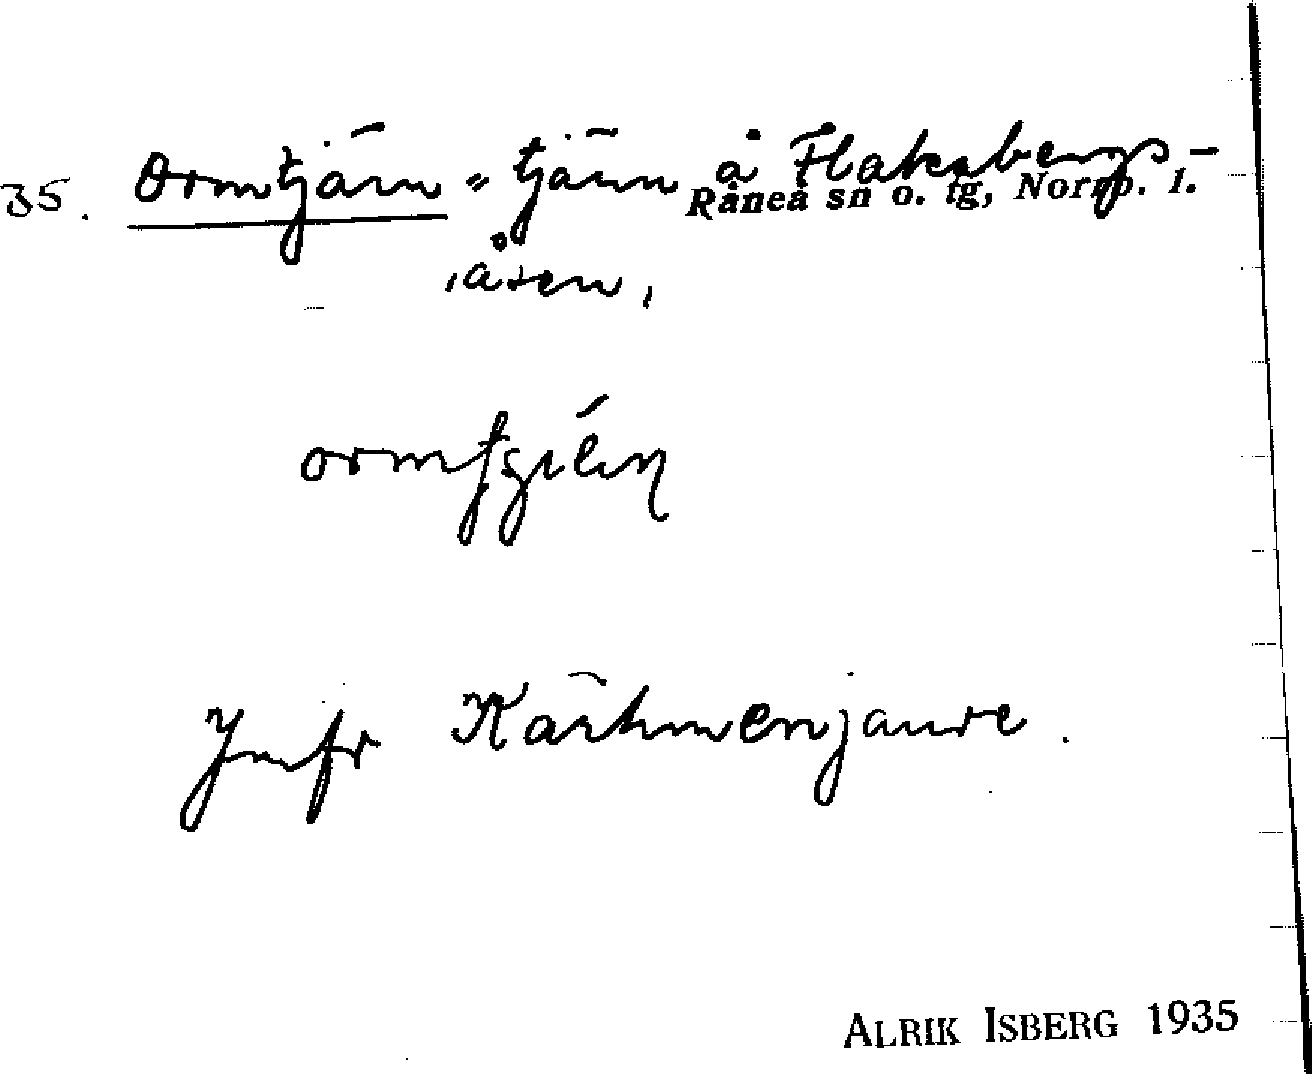 35. Ormtjärn = tjärn å Flakabergs-
Råneå sn o. tg, Norrb. l.
åsen.
Jmfr Kärhmenjaure.
ALRIK ISBERG 1935